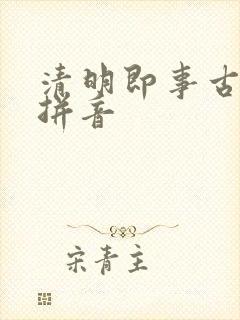 清明即事古
拼音
宋青主